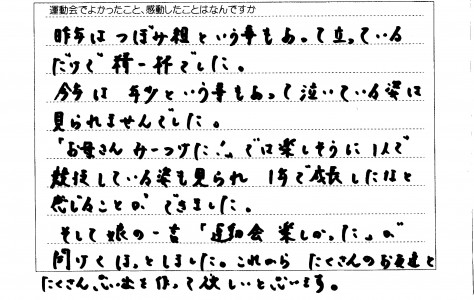 運動会でよかったこと、感動したことはなんですか
昨年はつぼみ組という事もあって立っている
だけで精一杯でした。
今年は年少という事もあって泣いている姿は
見られませんでした。
「お母さんみーつけた!」では楽しそうに1人で
競技している姿も見られ1年で成長したなと
感じることができました。
そして娘の一言「運動会楽しかった」が
聞けてほっとしました。これからたくさんのお友達と
たくさん思い出を作って欲しいと思います。